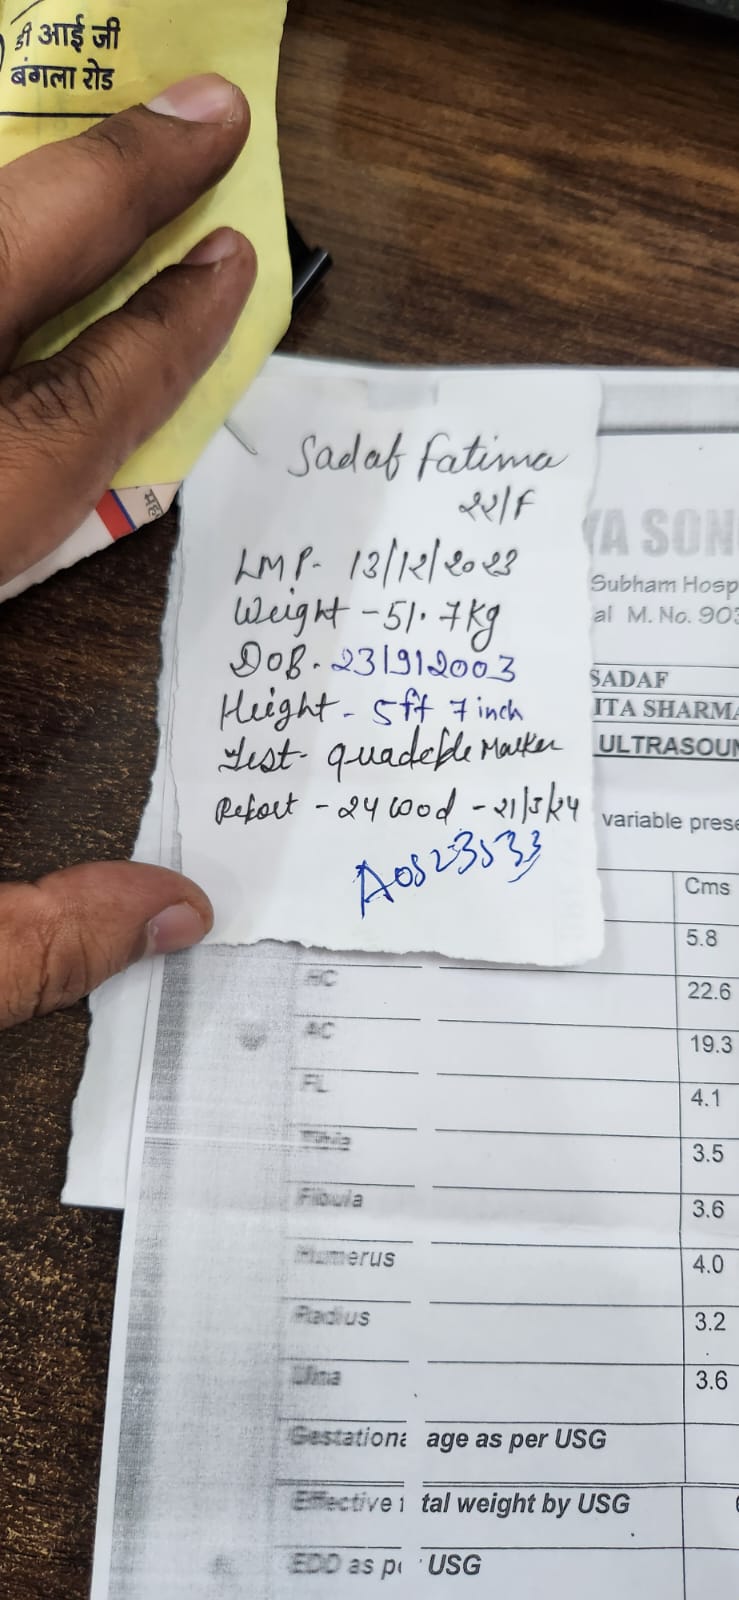 डी आई जी
बंगला रोड
Sadaf Fatima
22/F
LMP- 13/12/2023
Weight - 51.7kg
DOB. 23/9/2003
Height - 5ft 7 inch
Test- quadeple Marker
Report - 24 wod - 21/5/24
A0523533
YA SON
Subham Hosp
al M. No. 903
SADAF
ITA SHARMA
ULTRASOUN
variable prese
Cms
5.8
HC 22.6
AC 19.3
FL 4.1
Tibia 3.5
Fibula 3.6
Humerus 4.0
Radius 3.2
Ulna 3.6
Gestationa age as per USG
Effective f tal weight by USG
EDD as pe USG